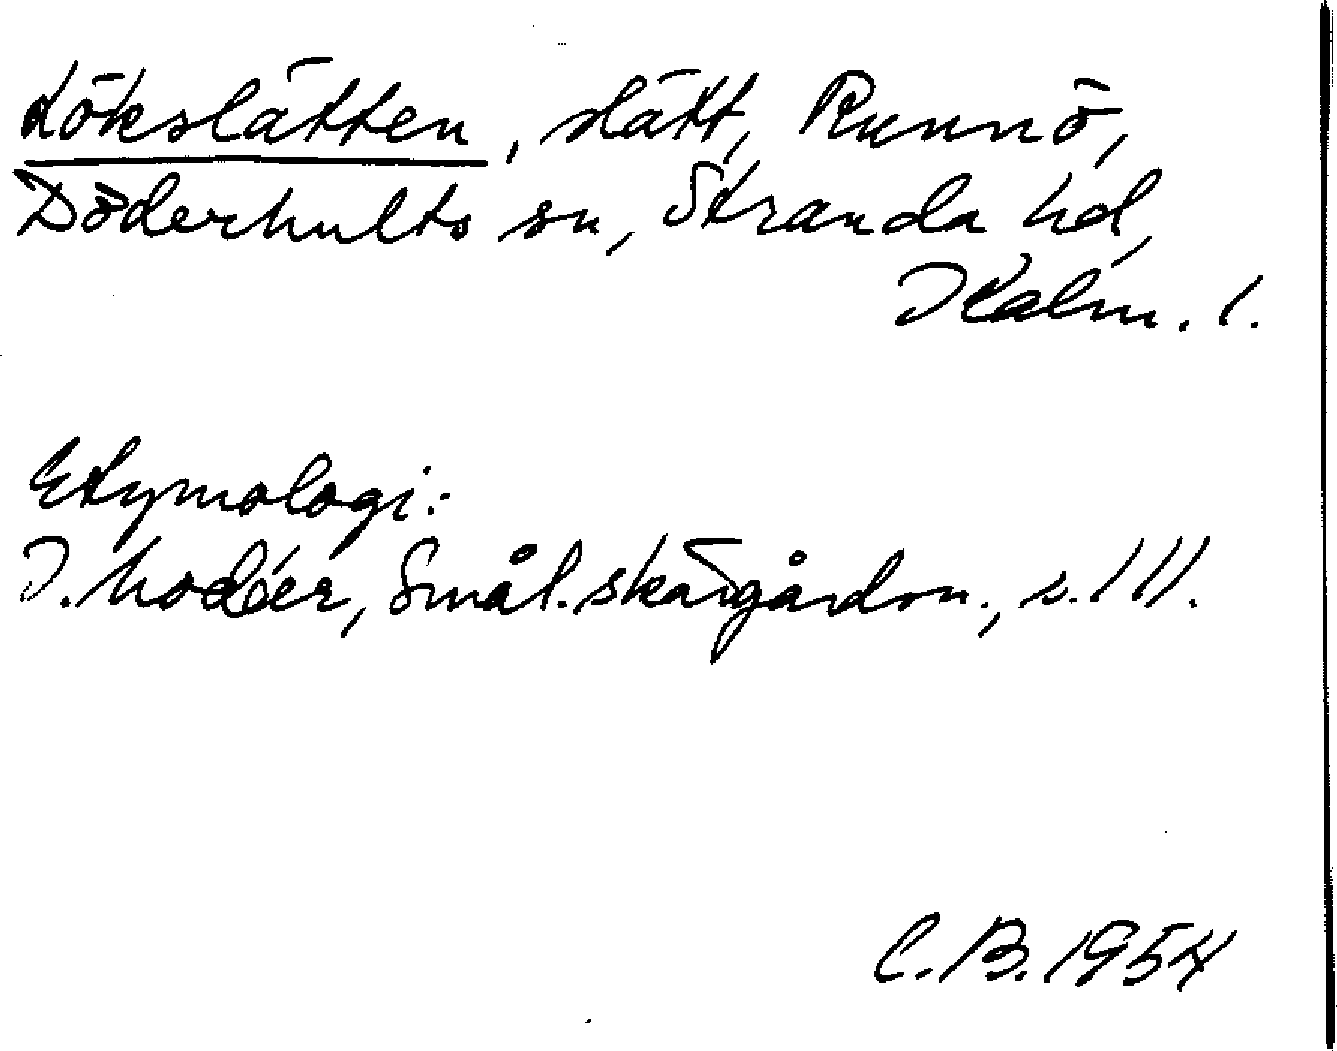 Lökslätten, slätt, Runnö,
Döderhults sn, Stranda hd,
Kalm. l.
Etymologi:
I. Modéer, Smål. skärgårdsn., s. 111.
C.B. 1954